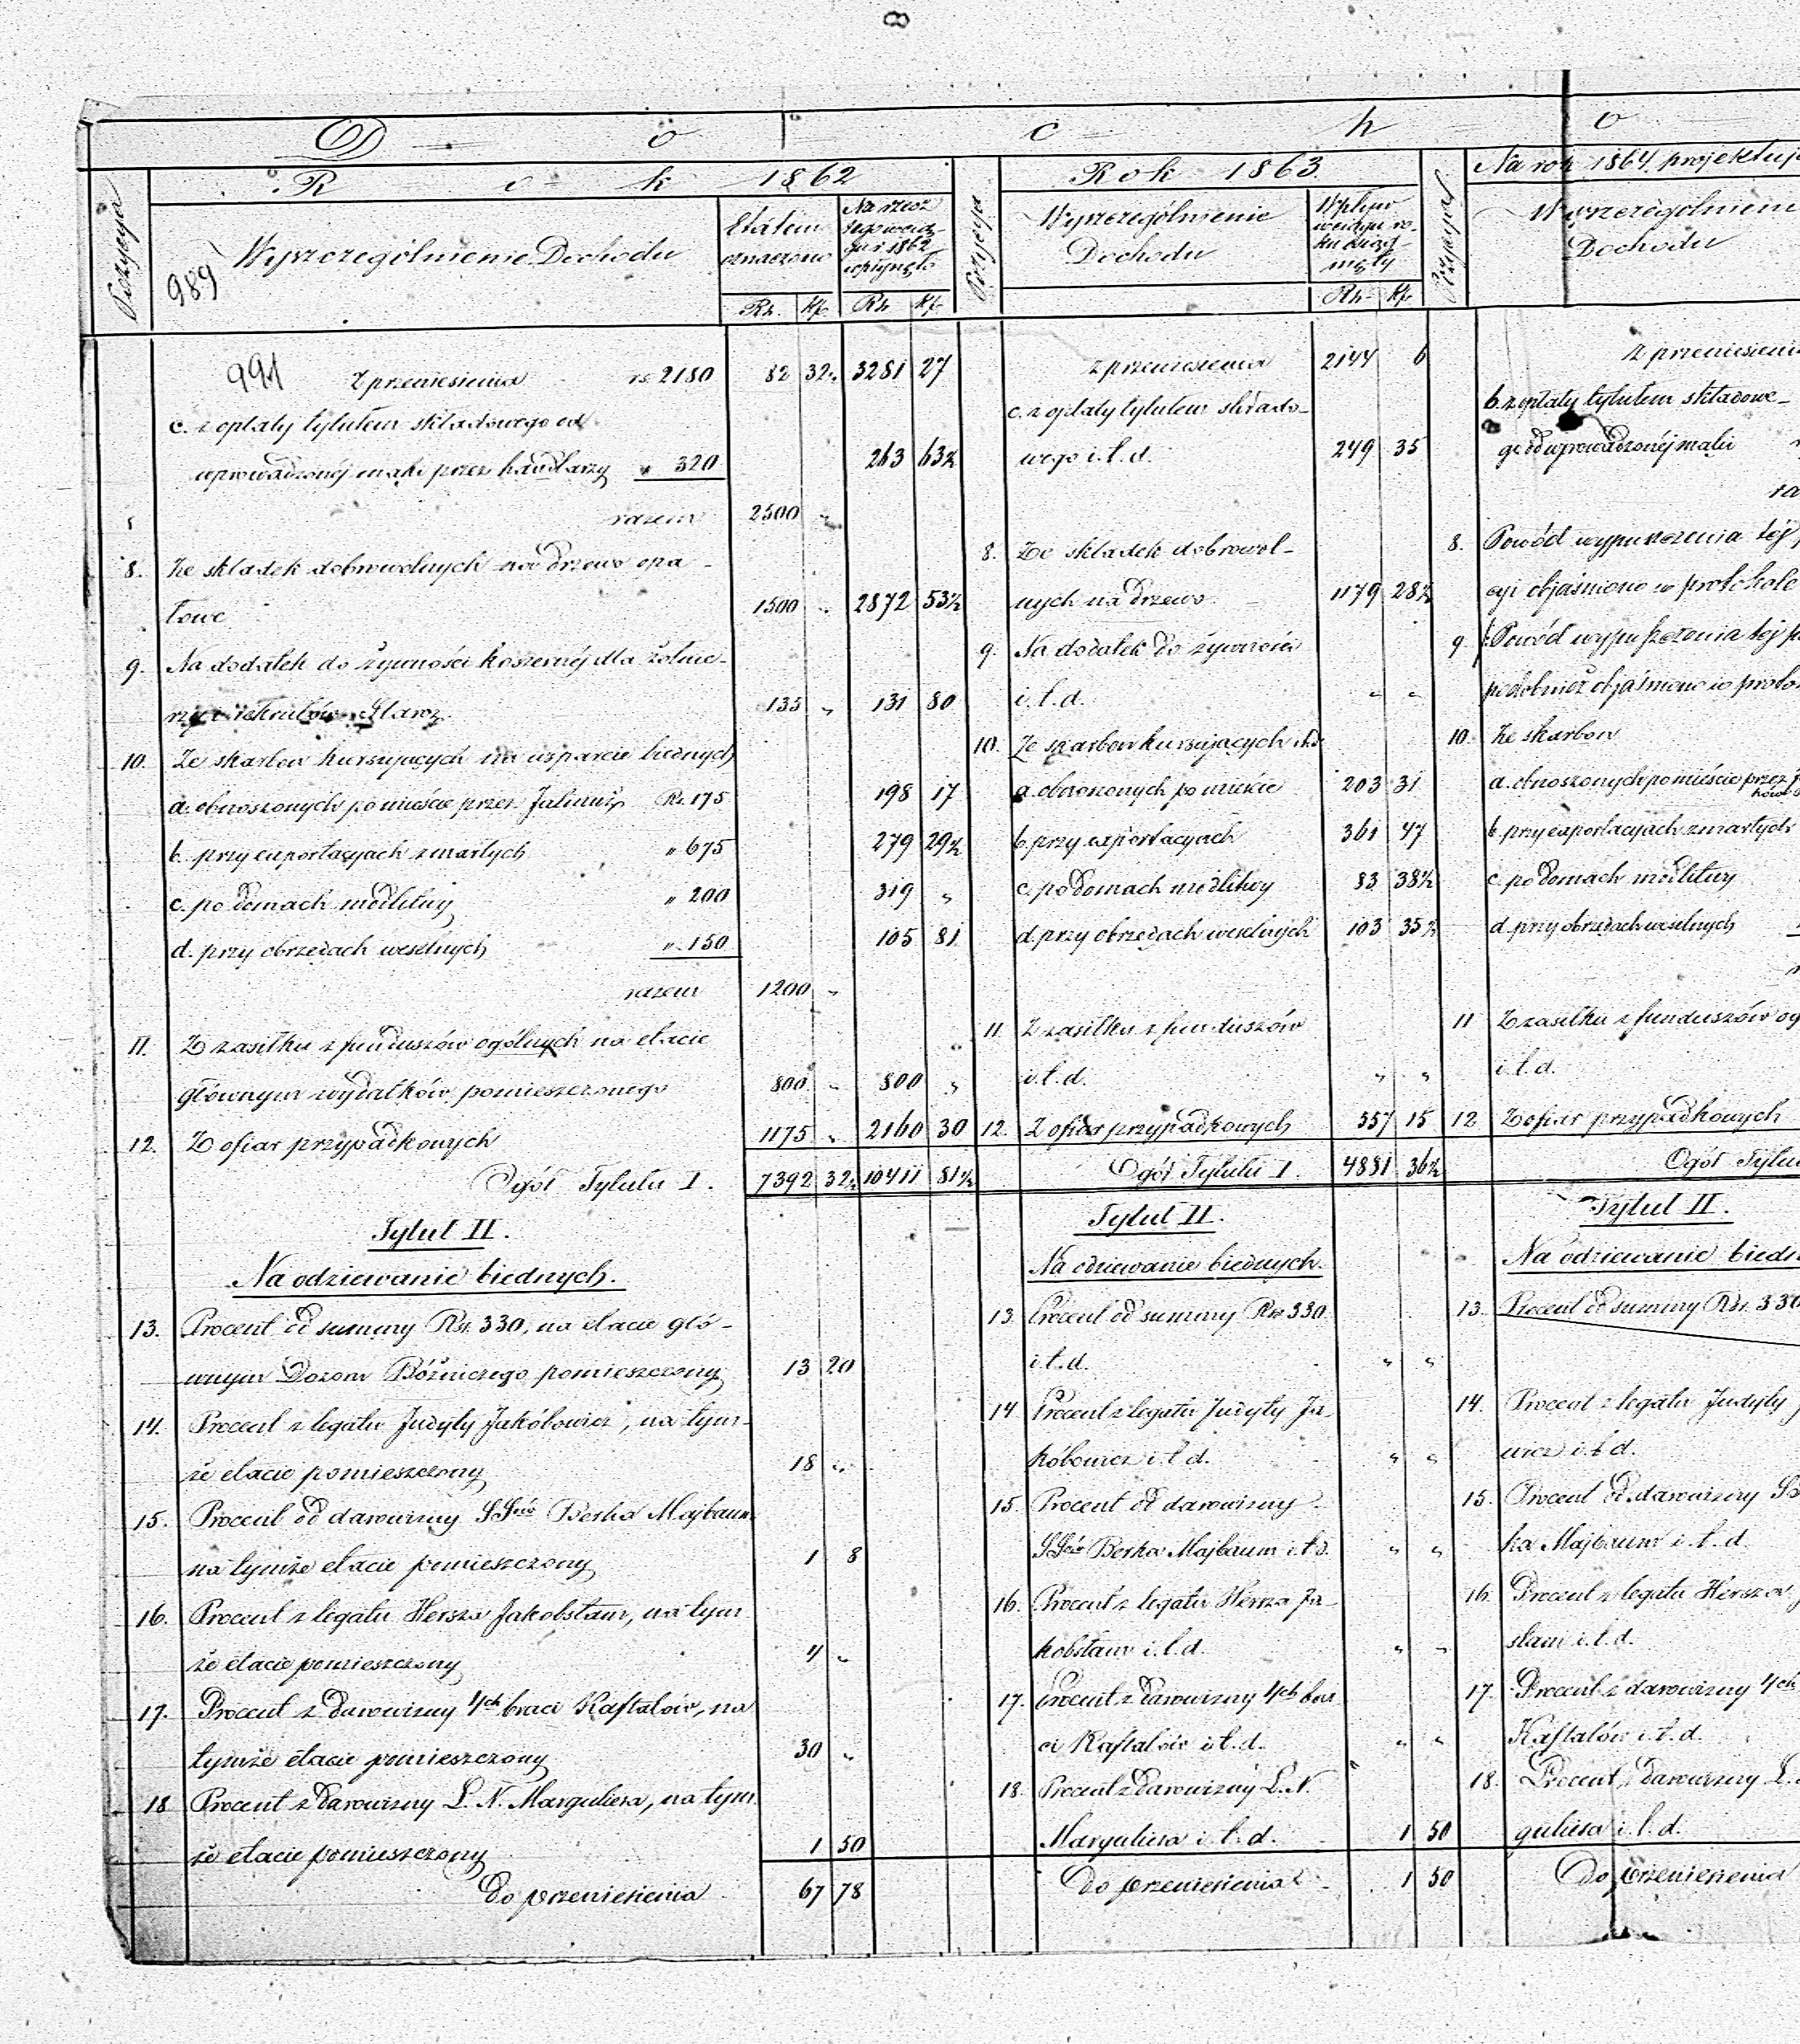 8
D o c h o
R o k 1862
Rok 1863
Na rok 1864 projektuj
Pozycya
989
Wyszczególnienie Dochodu
Etatem oznaczono
Na rzecz
wpłynęło
Rs. Kp. Rs. Kp.
Pozycya
Wyszczególnienie Dochodu
Wpływ
Rs. Kp.
Pozycya
Wyszczególnieni
Dochodu
991 Z przeniesienia rs 2180 82 32½ 3281 27
c. z opłaty tytułem składowego od
wprowadzonéj mąki przez handlarzy " 320 263 63½
razem 2500 "
8. Ze składek dobrowolnych na drzewo opa-
łowe 1500 " 2872 53½
9. Na dodatek do żywności koszernéj dla żołnie-
rzy i rekrutów Starz. 135 " 131 80
10. Ze skarbon kursujących na wsparcie biednych
a. obnoszonych po mieście przez Rs. 175 198 17
b. przy exportacyjach zmarłych " 675 279 29½
c. po domach modlitwy " 200 319 "
d. przy obrzędach weselnych " 150 105 81
razem 1200 "
11. Z zasiłku z funduszów ogólnych na etacie
głównym wydatków pomieszczonego 800 " 800 "
12. Z ofiar przypadkowych 1175 " 2160 30
Ogół Tytułu I. 7392 32½ 10411 81½
Tytuł II.
Na odziewanie biednych.
13. Procent od summy Rsr. 330, na etacie głó-
wnym Dozoru Bóżniczego pomieszczony 13 20
14. Procent z legatu Judyty Jakóbowicz, na tym-
że etacie pomieszczony 18 "
15. Procent od darowizny SSrów Berka Majbaum
na tymże etacie pomieszczony 1 8
16. Procent z legatu Hersza Jakobstam, na tym
że etacie pomieszczony 4 "
17. Procent z darowizny 4ch braci Kaftalów, na
tymże etacie pomieszczony 30 "
18. Procent z darowizny L. N. Marguliesa, na tym
że etacie pomieszczony 1 50
Do przeniesienia 67 78
z przeniesienia 2144 6
c. z opłaty tytułem składo-
wego i.t.d. 249 35
8. Ze składek dobrowol-
nych na drzewo 1179 28½
9. Na dodatek do żywności
i.t.d. " "
10. Ze skarbon kursujących i.t.d.
a. obnoszonych po mieście 203 31
b. przy exportacyach 361 47
c. po domach modlitwy 83 38½
d. przy obrzędach weselnych 103 35½
11. Z zasiłku z funduszów
i.t.d. " "
12. Z ofiar przypadkowych 557 15
Ogół Tytułu I. 4881 36½
Tytuł II.
Na odziewanie biednych.
13. Procent od summy Rsr 330
i.t.d. " "
14. Procent z legatu Judyty Ja-
kóbowicz i.t.d. " "
15. Procent od darowizny
SSrów Berka Majbaum i.t.d. " "
16. Procent z legatu Hersza Ja-
kobstam i.t.d. " "
17. Procent z darowizny 4ch bra
ci Kaftalów i.t.d. " "
18. Procent z darowizny L. N.
Marguliesa i.t.d. 1 50
Do przeniesienia 1 50
Z przeniesieni
b. z opłaty tytułem składowe-
go od wprowadzonéj mąki
ra
8. Powód wypuszczenia téj
cyi objaśniono w protokole
9. Powód wypuszczenia téj
podobnież objaśniono w proto
10. Ze skarbon
a. obnoszonych po mieście przez
b. przy exportacyjach zmarłych
c. po domach modlitwy
d. przy obrzędach weselnych
11 Z zasiłku z funduszów og
i.t.d.
12 Z ofiar przypadkowych
Ogół Tytuł
Tytuł II.
Na odziewanie biedn
13. Procent od summy Rsr. 330
14. Procent z legatu Judyty
wicz i.t.d.
15. Procent od darowizny
ka Majbaum i.t.d.
16. Procent z legatu Hersza
stam i.t.d.
17. Procent z darowizny 4ch
Kaftalów i.t.d.
18. Procent z darowizny L.
guliesa i.t.d.
Do przeniesienia